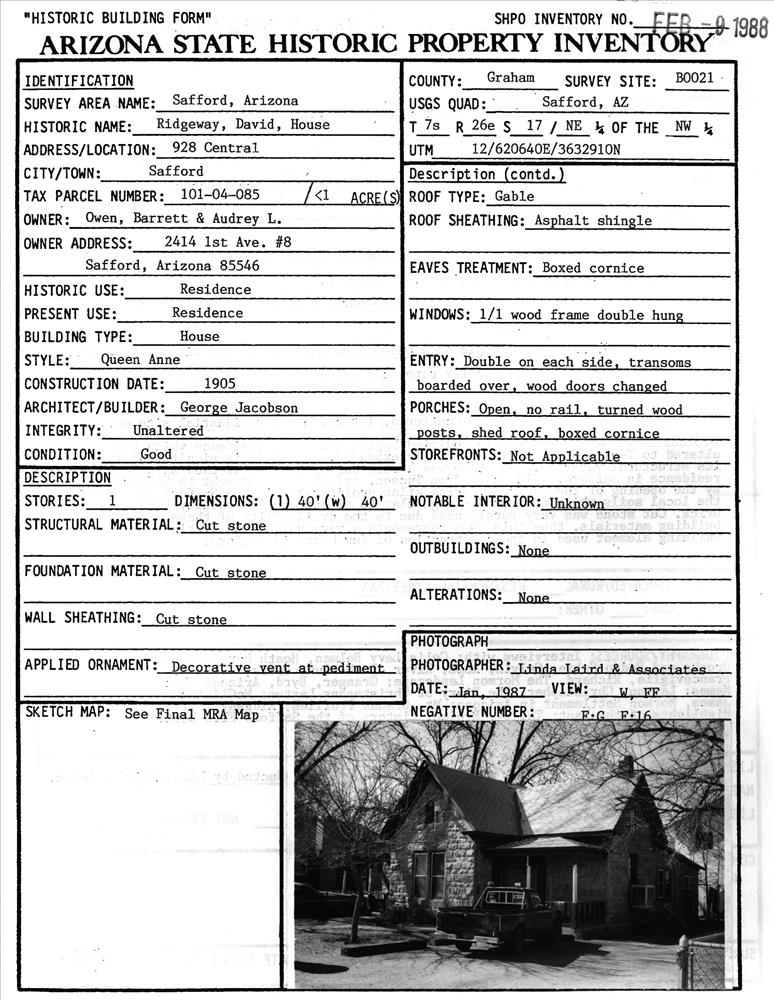 "HISTORIC BUILDING FORM"
SHPO INVENTORY NO. FEB - 9 1988
ARIZONA STATE HISTORIC PROPERTY INVENTORY
IDENTIFICATION
SURVEY AREA NAME: Safford, Arizona
HISTORIC NAME: Ridgeway, David, House
ADDRESS/LOCATION: 928 Central
CITY/TOWN: Safford
TAX PARCEL NUMBER: 101-04-085 /<1 ACRE(S)
OWNER: Owen, Barrett & Audrey L.
OWNER ADDRESS: 2414 1st Ave. #8
Safford, Arizona 85546
HISTORIC USE: Residence
PRESENT USE: Residence
BUILDING TYPE: House
STYLE: Queen Anne
CONSTRUCTION DATE: 1905
ARCHITECT/BUILDER: George Jacobson
INTEGRITY: Unaltered
CONDITION: Good
DESCRIPTION
STORIES: 1 DIMENSIONS: (1) 40' (w) 40'
STRUCTURAL MATERIAL: Cut stone
FOUNDATION MATERIAL: Cut stone
WALL SHEATHING: Cut stone
APPLIED ORNAMENT: Decorative vent at pediment
SKETCH MAP: See Final MRA Map
COUNTY: Graham SURVEY SITE: B0021
USGS QUAD: Safford, AZ
T 7s R 26e S 17 / NE ¼ OF THE NW ¼
UTM 12/620640E/3632910N
Description (contd.)
ROOF TYPE: Gable
ROOF SHEATHING: Asphalt shingle
EAVES TREATMENT: Boxed cornice
WINDOWS: 1/1 wood frame double hung
ENTRY: Double on each side, transoms
boarded over, wood doors changed
PORCHES: Open, no rail, turned wood
posts, shed roof, boxed cornice
STOREFRONTS: Not Applicable
NOTABLE INTERIOR: Unknown
OUTBUILDINGS: None
ALTERATIONS: None
PHOTOGRAPH
PHOTOGRAPHER: Linda Laird & Associates
DATE: Jan, 1987 VIEW: W, FF
NEGATIVE NUMBER: F-G F-16